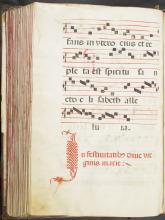 fans in utero eius et re
ple ta est spiritu sa n
cto e li sabeth alle
lu ia.
In festiuitatib9 diue vir
ginis marie: